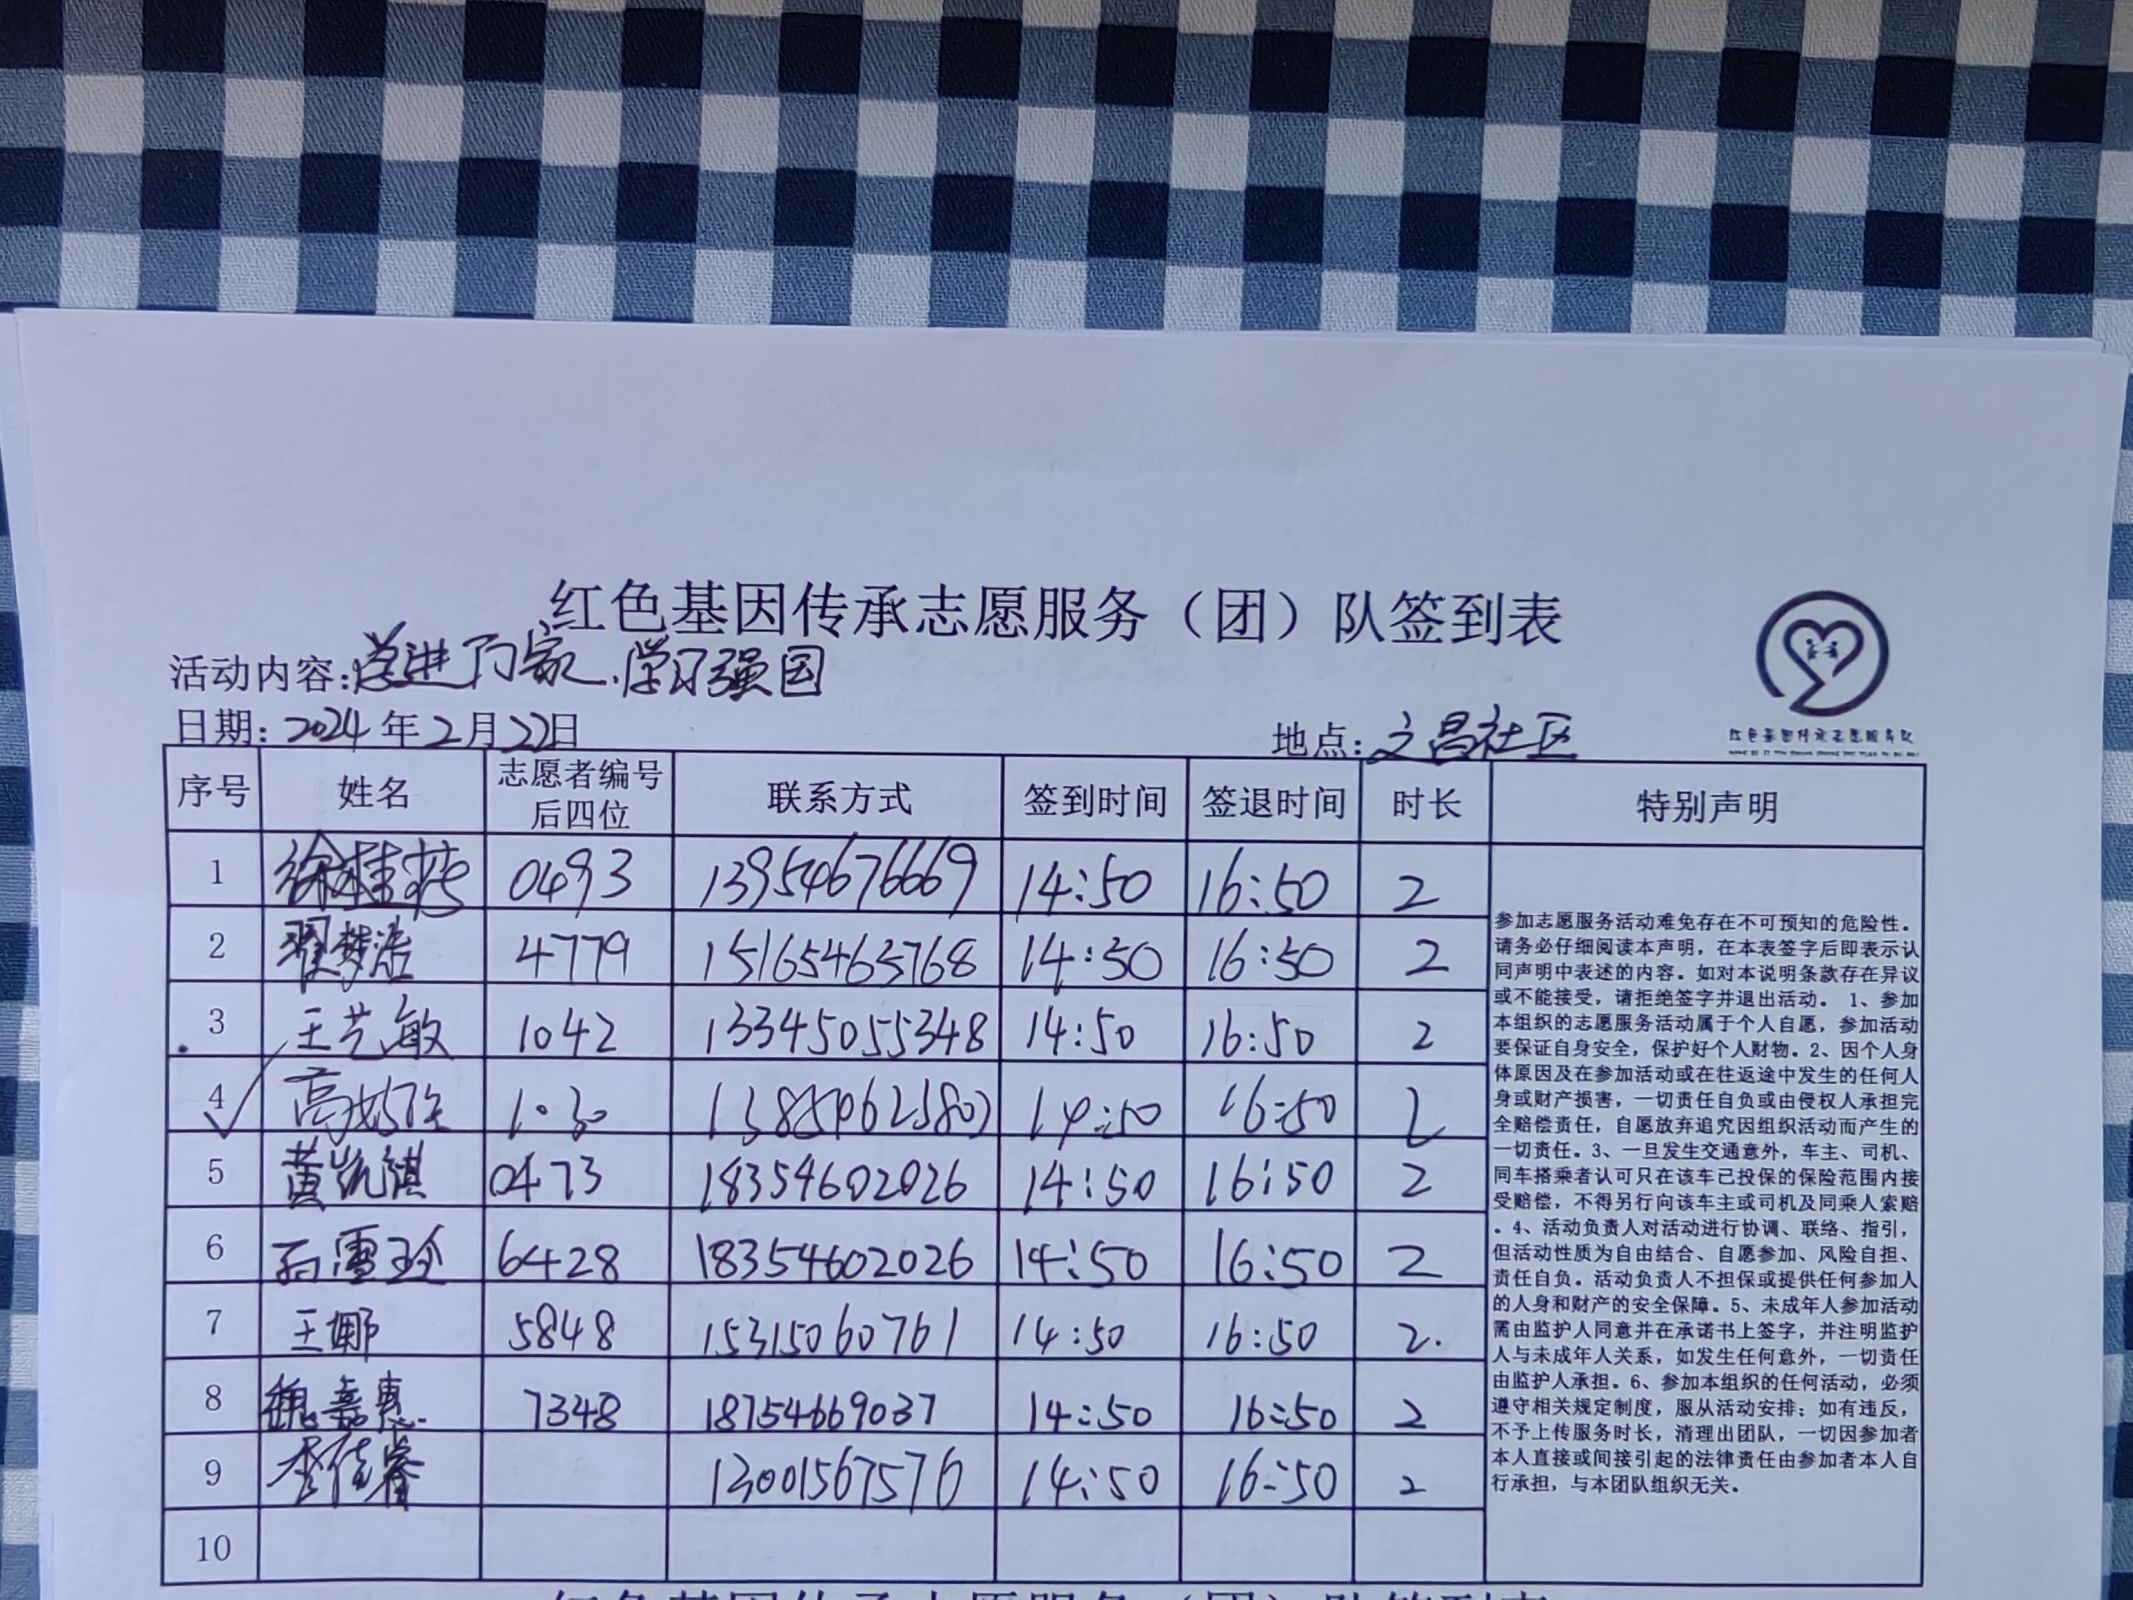 红色基因传承志愿服务（团）队签到表
活动内容：进万家.学习强国
日期：2024年2月22日 地点：文昌社区
红色基因传承志愿服务队
序号 姓名 志愿者编号后四位 联系方式 签到时间 签退时间 时长 特别声明
1 徐桂燕 0493 13954676669 14:50 16:50 2
2 翟梦浩 4779 15165463768 14:50 16:50 2
3 王艺敏 1042 13345055348 14:50 16:50 2
4 高 14:50 16:50 2
5 黄凯淇 0473 18354602026 14:50 16:50 2
6 石雪玲 6428 18354602026 14:50 16:50 2
7 王娜 5848 15315060761 14:50 16:50 2.
8 魏嘉惠 7348 18754669037 14:50 16:50 2
9 李佳睿 13001567576 14:50 16:50 2
10
参加志愿服务活动难免存在不可预知的危险性。
请务必仔细阅读本声明，在本表签字后即表示认
同声明中表述的内容。如对本说明条款存在异议
或不能接受，请拒绝签字并退出活动。 1、参加
本组织的志愿服务活动属于个人自愿，参加活动
要保证自身安全，保护好个人财物。2、因个人身
体原因及在参加活动或在往返途中发生的任何人
身或财产损害，一切责任自负或由侵权人承担完
全赔偿责任，自愿放弃追究因组织活动而产生的
一切责任。3、一旦发生交通意外，车主、司机、
同车搭乘者认可只在该车已投保的保险范围内接
受赔偿，不得另行向该车主或司机及同乘人索赔
。4、活动负责人对活动进行协调、联络、指引，
但活动性质为自由结合、自愿参加、风险自担、
责任自负。活动负责人不担保或提供任何参加人
的人身和财产的安全保障。5、未成年人参加活动
需由监护人同意并在承诺书上签字，并注明监护
人与未成年人关系，如发生任何意外，一切责任
由监护人承担。6、参加本组织的任何活动，必须
遵守相关规定制度，服从活动安排；如有违反，
不予上传服务时长，清理出团队，一切因参加者
本人直接或间接引起的法律责任由参加者本人自
行承担，与本团队组织无关。
红色基因传承志愿服务（团）队签到表